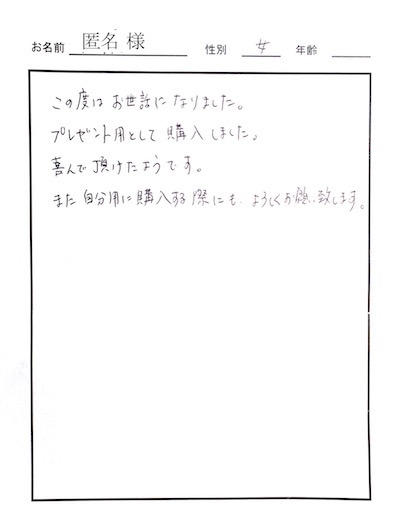 お名前 匿名 様 性別 女 年齢
この度は お世話に なりました。
プレゼント用として 購入 しました。
喜んで 頂けたようです。
また 自分用に 購入する 際にも、よろしくお願い致します。